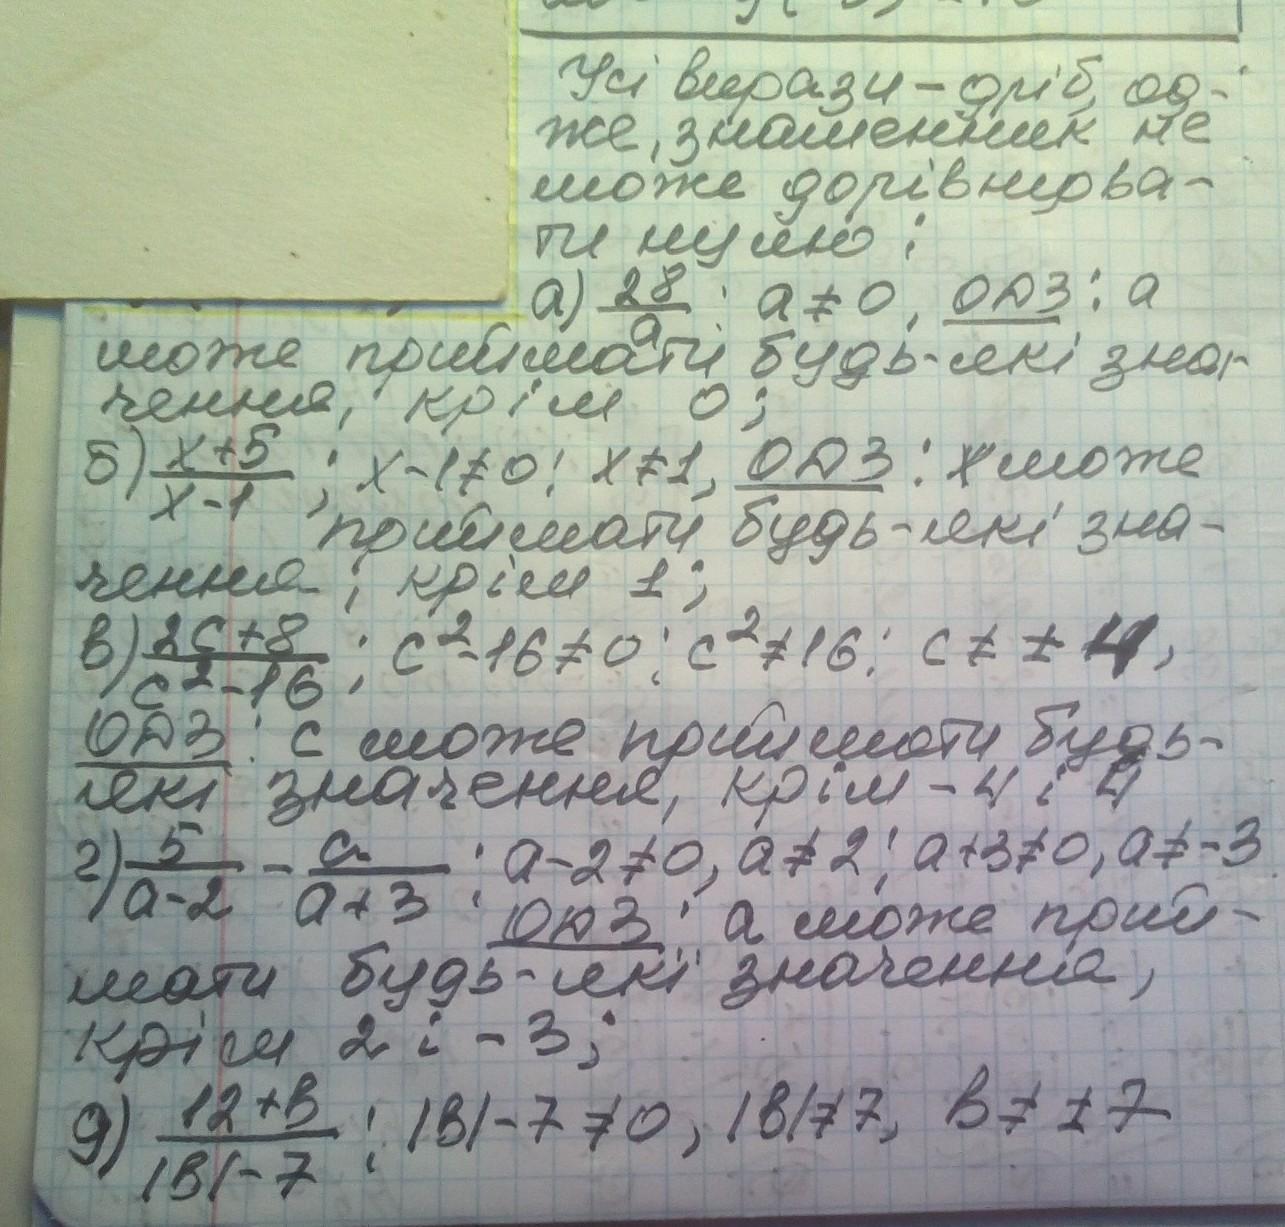 Усі вирази - дріб, от-
же, знаменник не
може дорівнюва-
ти нулю:
а) 28/а: а ≠ 0, ОДЗ: а
може приймати будь-які зна-
чення, крім 0;
б) х+5/х-1; х-1≠0; х≠1, ОДЗ: х може
приймати будь-які зна-
чення, крім 1;
в) 2с+8/с²-16; с²-16≠0; с²≠16; с≠±4,
ОДЗ: с може приймати будь-
які значення, крім -4 і 4
г) 5/а-2 - а/а+3: а-2≠0, а≠2; а+3≠0, а≠-3
ОДЗ: а може прий-
мати будь-які значення,
крім 2 і -3;
д) 12+в/|в|-7; |в|-7≠0, |в|≠7, в≠±7